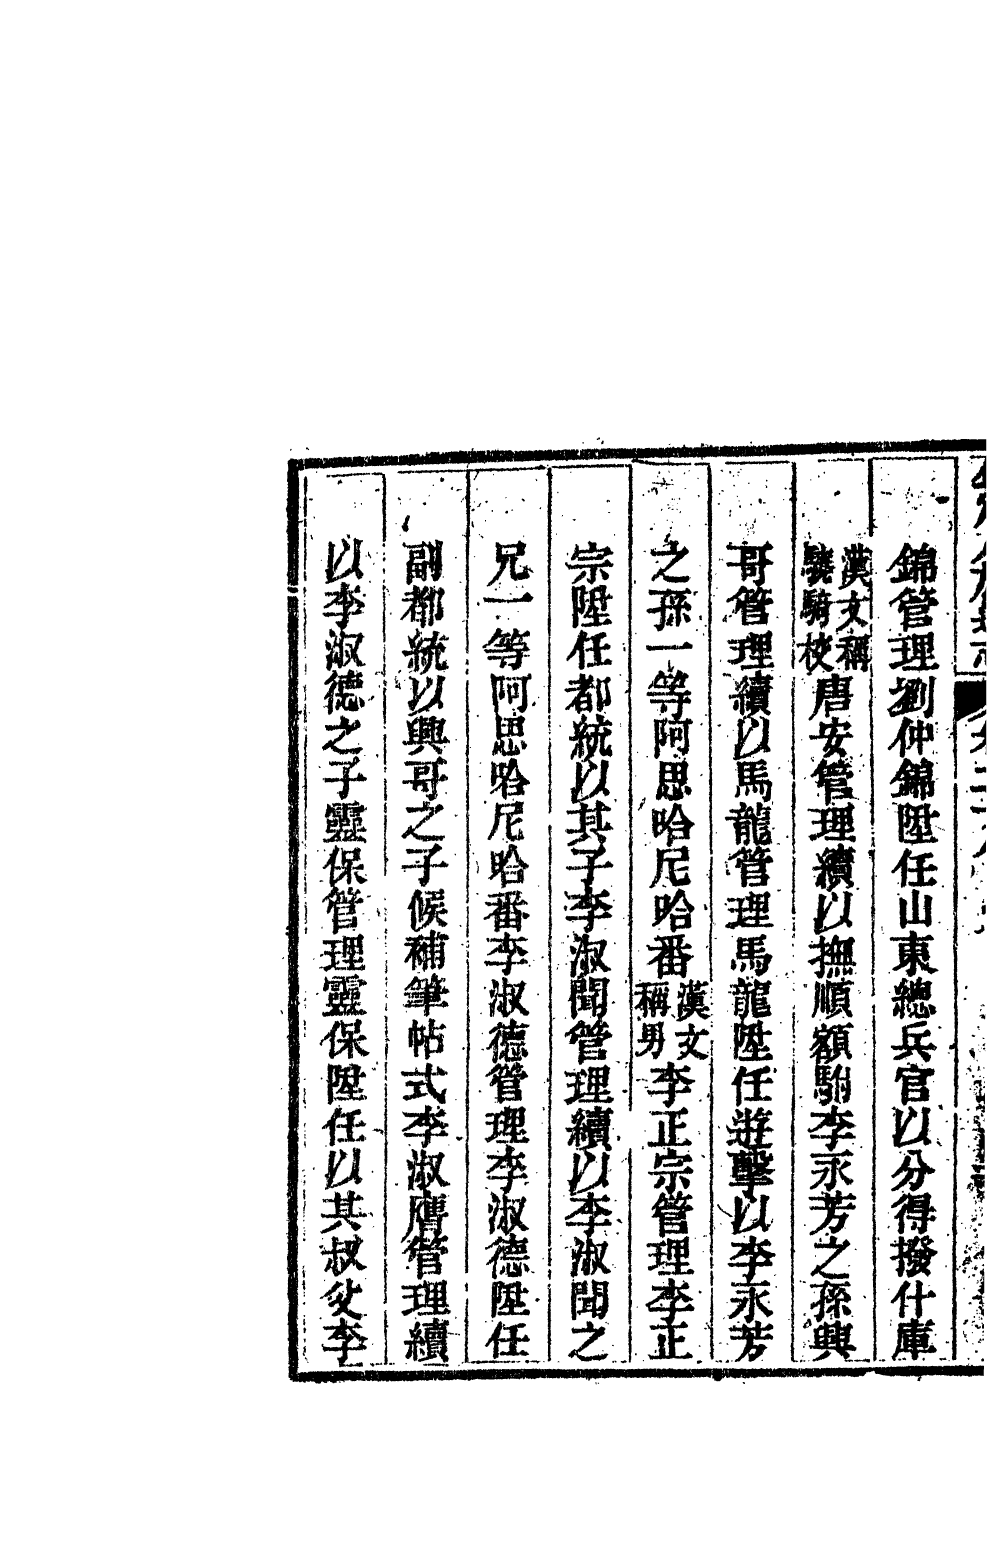 錦管理劉仲錦陞任山東總兵官以分得撥什庫
漢文稱驍騎校唐安管理續以撫順額駙李永芳之孫興
哥管理續以馬龍管理馬龍陞任遊擊以李永芳
之孫一等阿思哈尼哈番漢文稱男李正宗管理李正
宗陞任都統以其子李淑聞管理續以李淑聞之
兄一等阿思哈尼哈番李淑德管理李淑德陞任
副都統以興哥之子候補筆帖式李淑膺管理續
以李淑德之子靈保管理靈保陞任以其叔父李